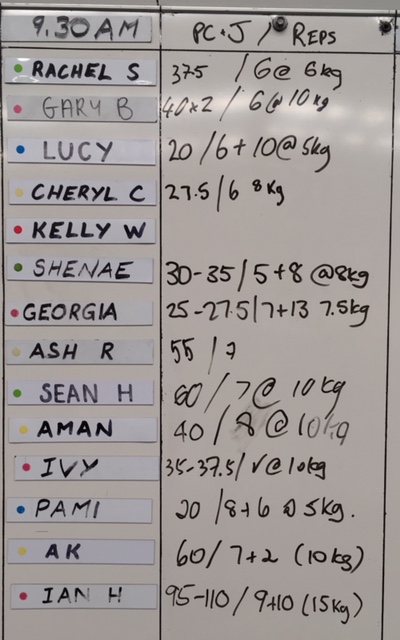 9.30AM PC+J / REPS
RACHEL S 37.5 / 6@ 6kg
GARY B 40x2 / 6@10kg
LUCY 20 / 6+10@5kg
CHERYL C 27.5 / 6 8kg
KELLY W
SHENAE 30-35 / 5+8 @8kg
GEORGIA 25-27.5 / 7+13 7.5kg
ASH R 55 / 7
SEAN H 60 / 7@ 10kg
AMAN 40 / 8 @ 10kg
IVY 35-37.5 / √@10kg
PAMI 20 / 8+6 @ 5kg.
AK 60 / 7+2 (10kg)
IAN H 95-110 / 9+10 (15kg)